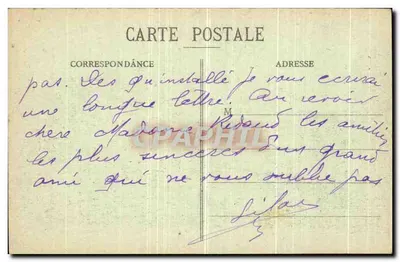 CARTE POSTALE
CORRESPONDANCE
ADRESSE
pas. Des qu'installé je vous ecrirai
une longue lettre. Au revoir
M
chere Madame les amitiés
les plus sinceres d'un grand
ami qui ne vous oublie pas
CPAPHIL